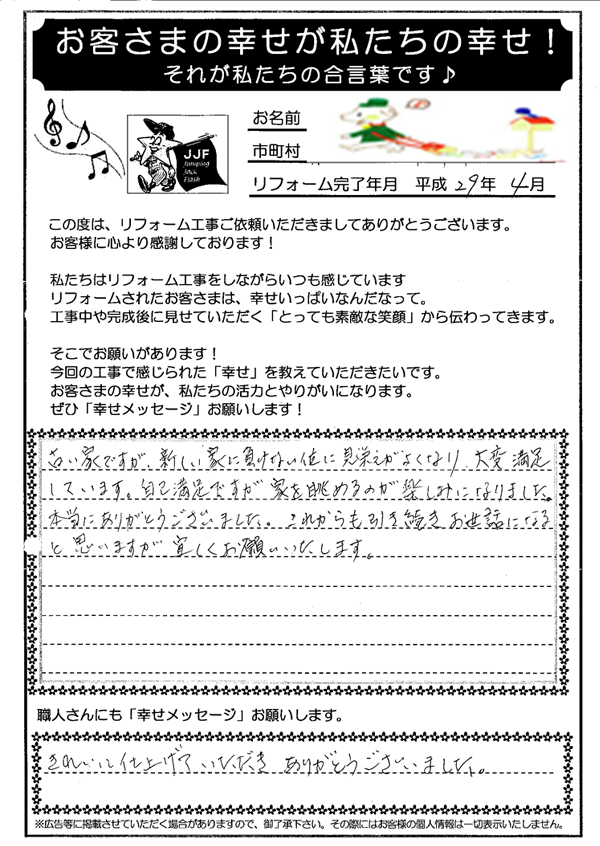 お客さまの幸せが私たちの幸せ！
それが私たちの合言葉です♪
JJF
Jumping
Jack
Flash
お名前
市町村
リフォーム完了年月 平成 29年 4月
この度は、リフォーム工事ご依頼いただきましてありがとうございます。
お客様に心より感謝しております！
私たちはリフォーム工事をしながらいつも感じています
リフォームされたお客さまは、幸せいっぱいなんだなって。
工事中や完成後に見せていただく「とっても素敵な笑顔」から伝わってきます。
そこでお願いがあります！
今回の工事で感じられた「幸せ」を教えていただきたいです。
お客さまの幸せが、私たちの活力とやりがいになります。
ぜひ「幸せメッセージ」お願いします！
古い家ですが、新しい家に負けない位に見栄えがよくなり、大変満足
しています。自己満足ですが家を眺めるのが楽しみになりました。
本当にありがとうございました。これからも引き続きお世話になる
と思いますが宜しくお願いいたします。
職人さんにも「幸せメッセージ」お願いします。
きれいに仕上げていただきありがとうございました。
※広告等に掲載させていただく場合がありますので、御了承下さい。その際にはお客様の個人情報は一切表示いたしません。